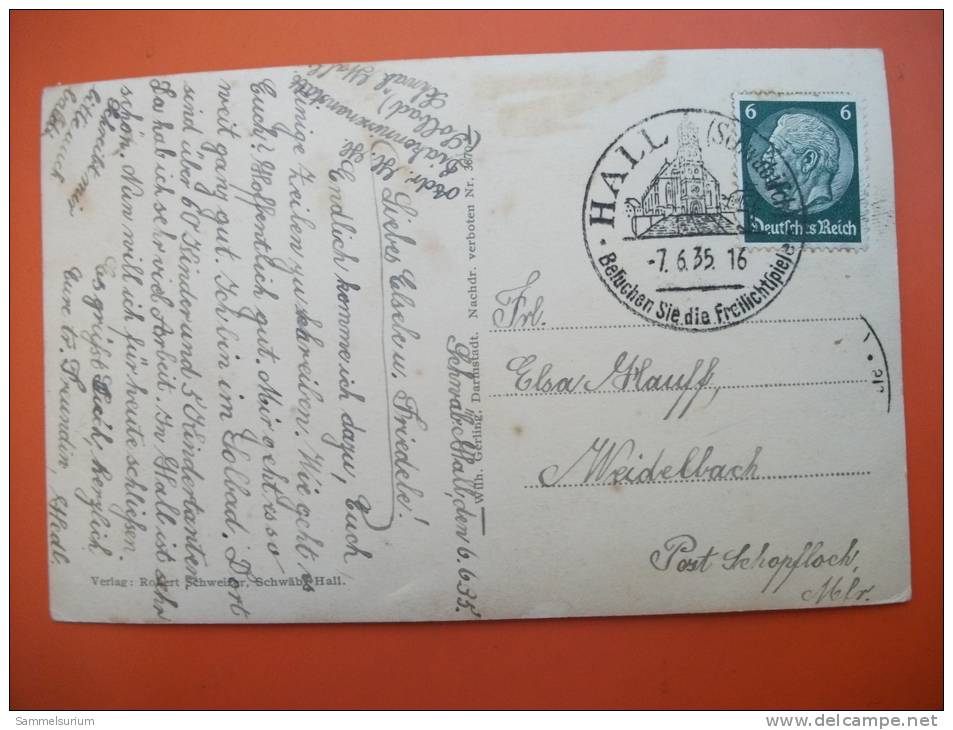 Schwäb. Hall, den 6.6.35.
Liebes Elschen, Friedele!
Endlich komme ich dazu, Euch
einige Zeilen zu schreiben. Wie geht es
Euch? Hoffentlich gut. Mir geht es so
weit ganz gut. Ich bin im Solbad. Dort
sind über 60 Kinder und 5 Kindertanten.
Da hab ich sehr viel Arbeit. In Hall ist sehr
schön. Nun will ich für heute schließen.
Es grüßt Euch herzlich
Eure tr. Freundin, Hedl.
bitte
Adr. H. H.
Diakonissenanstalt
(Solbad)
Schwäb. Hall
Verlag: Robert Schweizer, Schwäb. Hall.
Wilh. Gerling, Darmstadt. Nachdr. verboten Nr. 3670
HALL (Schwäb.)
-7.6.35. 16
Besuchen Sie die Freilichtspiele
6 6
Deutsches Reich
Frl.
Elsa Hauff,
Weidelbach
Post Schopfloch,
Mfr.
Sammelsurium
www.delcampe.net